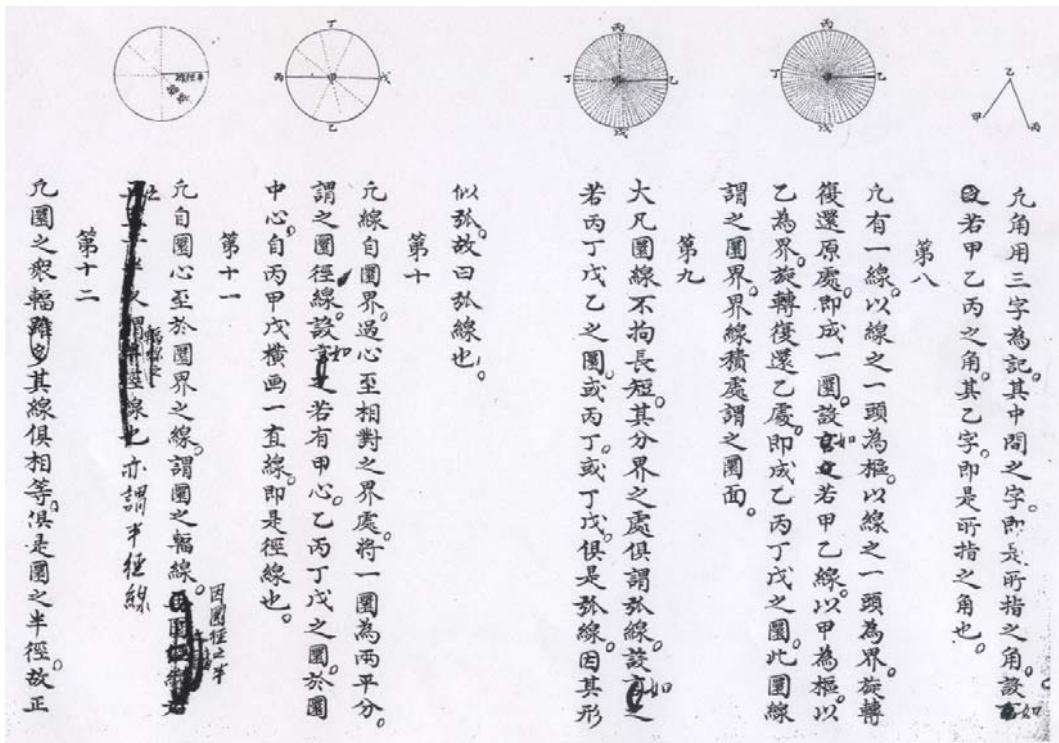 凢角用三字為記。其中間之字。即是所指之角。設如
若甲乙丙之角。其乙字。即是所指之角也。
第八
凢有一線。以線之一頭為樞。以線之一頭為界。旋轉
復還原處。即成一圜。設如若甲乙線。以甲為樞。以
乙為界。旋轉復還乙處。即成乙丙丁戊之圜。此圜線
謂之圜界。界線積處。謂之圜面。
第九
大凡圜線不拘長短。其分界之處。俱謂弧線。設如
若丙丁戊乙之圜。或丙丁。或丁戊。俱是弧線。因其形
似弧。故曰弧線也。
第十
凢線自圜界。過心至相對之界處。將一圜為兩平分。
謂之圜徑線。設如若有甲心。乙丙丁戊之圜。於圜
中心。自丙甲戊橫画一直線。即是徑線也。
第十一
凢自圜心至於圜界之線。謂圜之輻線。因圜徑之半
亦謂半徑線
第十二
凢圜之衆輻雖多其線俱相等。俱是圜之半徑。故正
乙
甲
丙
丙
丁
甲
乙
戊
丙
丁
甲
乙
戊
丁
丙
甲
戊
乙